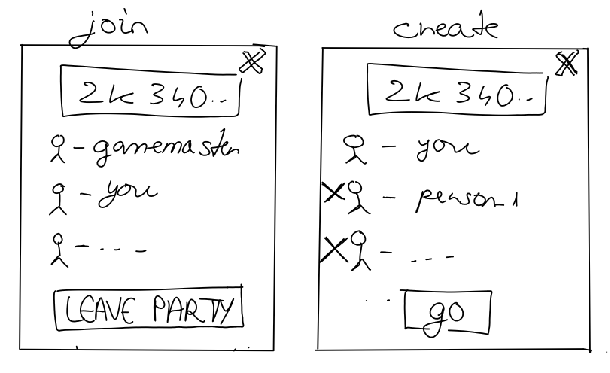 join
X
2k 340..
- gamemaster
- you
- ...
LEAVE PARTY
create
X
2k 340..
- you
X - person 1
X - ...
... go